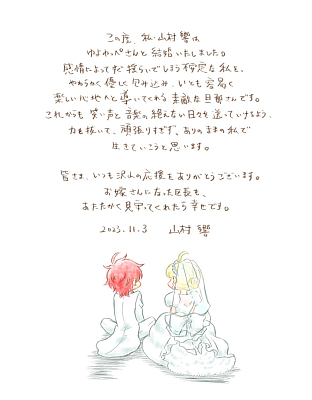 この度、私 山村 響は
ゆよゆっぺさんと結婚いたしました。
感情によってすぐ揺らいでしまう不安定な私を、
やわらかく優しく包み込み、いとも容易く
楽しい心地へと導いてくれる素敵な旦那さんです。
これからも笑い声と音楽の絶えない日々を送っていけるよう、
力を抜いて、頑張りすぎず、ありのままの私で
生きていこうと思います。
皆さま、いつも沢山の応援をありがとうございます。
お嫁さんになった区長も、
あたたかく見守ってくれたら幸せです。
2023.11.3 山村 響